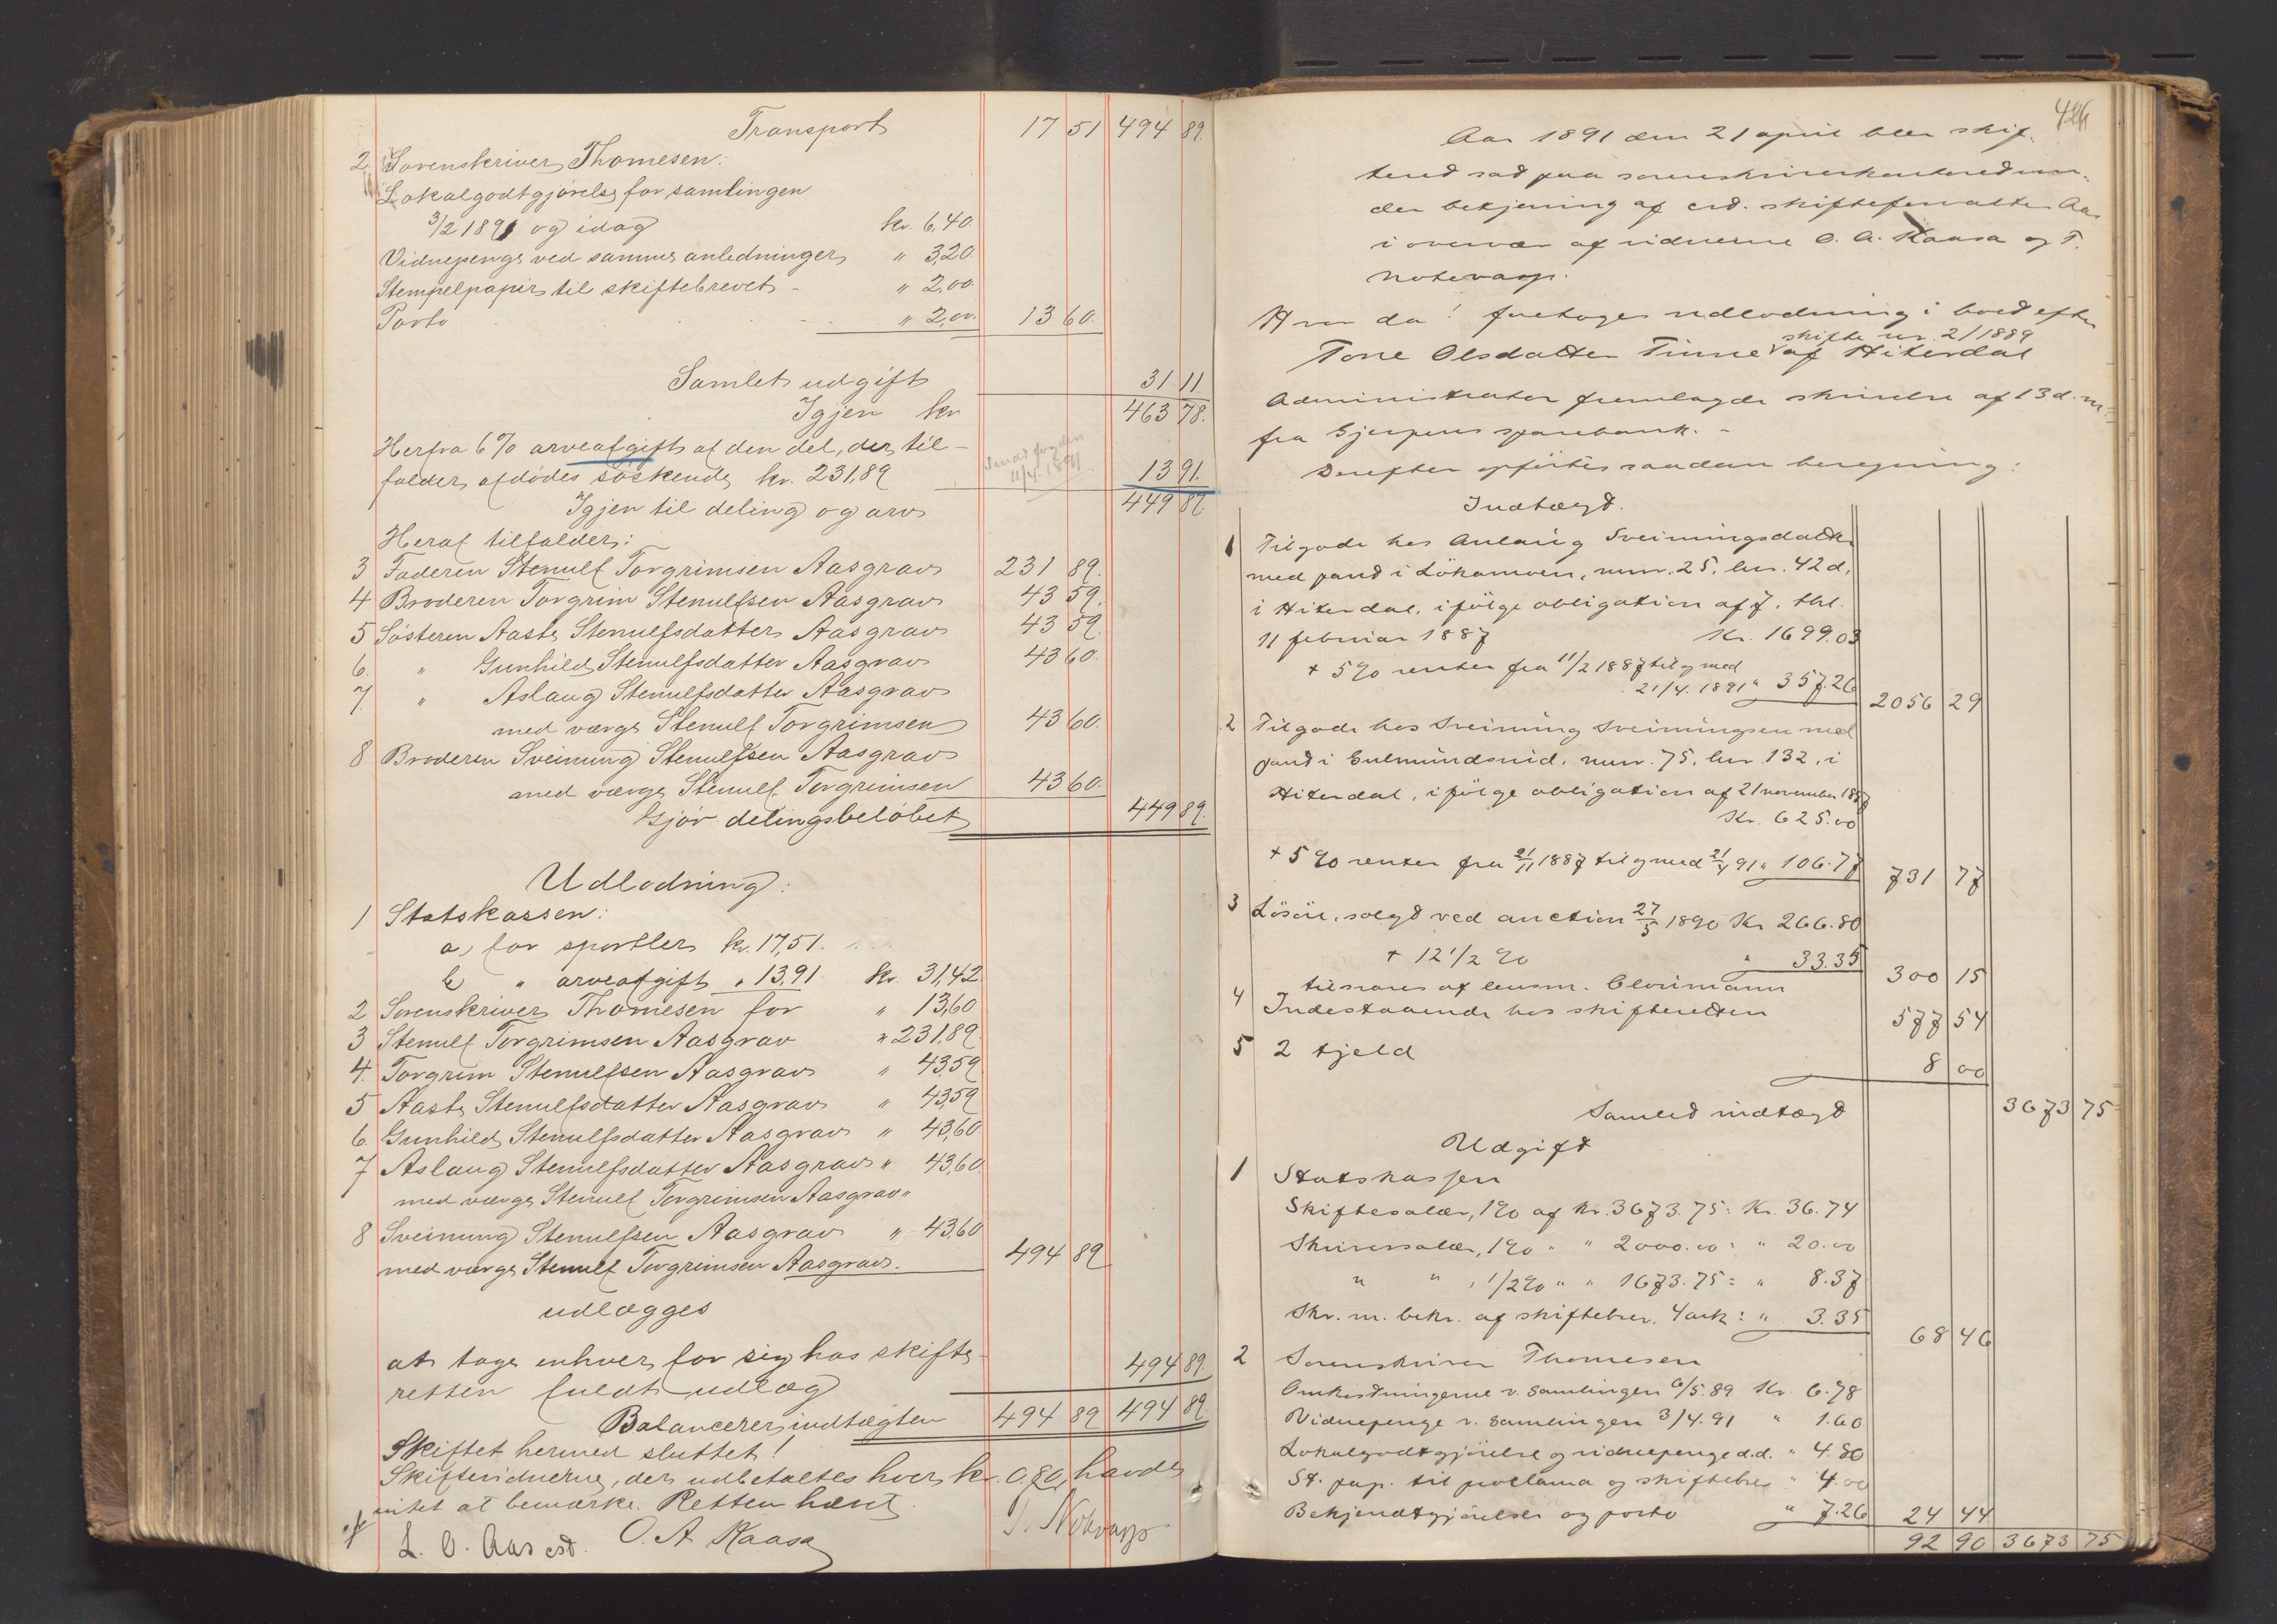 Transport 17 51 494 89.
2 Sorenskriver Thomesen:
Lokalgodtgjörelse for samlingen
3/2 1891 og idag kr. 6,40.
Vidnepenge ved samme anledninger „ 3,20.
Stempelpapir til skiftebrevet - „ 2,00
Porto „ 2,00. 13 60.
Samlet udgift 31 11.
Igjen kr 463 78.
Herfra 6% arveafgift af den del, der til-
falder afdødes söskende kr. 231,89 13 91.
11/4. 1891
Igjen til deling og arv 449 87
Heraf tilfalder:
3 Faderen Stenulf Torgrimsen Aasgrav 231 89.
4 Broderen Torgrim Stenulfsen Aasgrav 43 59.
5 Sösteren Aaste Stenulfsdatter Aasgrav 43 59.
6. „ Gunhild Stenulfsdatter Aasgrav 43 60.
7. „ Aslaug Stenulfsdatter Aasgrav
med værge Stenulf Torgrimsen 43 60.
8 Broderen Sveinung Stenulfsen Aasgrav
med værge Stenulf Torgrimsen 43 60.
Gjör delingsbelöbet 449 89.
Udlodning:
1 Statskassen:
a, for sportler kr. 17,51.
b „ arveafgift „ 13,91 kr. 31,42
2 Sorenskriver Thomesen for „ 13,60
3 Stenulf Torgrimsen Aasgrav „ 231,89.
4. Torgrim Stenulfsen Aasgrav „ 43,59
5 Aaste Stenulfsdatter Aasgrav „ 43,59
6. Gunhild Stenulfsdatter Aasgrav „ 43,60
7 Aslaug Stenulfsdatter Aasgrav „ 43,60.
med værge Stenulf Torgrimsen Aasgrav
8 Sveinung Stenulfsen Aasgrav „ 43,60
med værge Stenulf Torgrimsen Aasgrav. 494 89
udlægges
at tage enhver for sig hos skifte-
retten fuldt udlæg 494 89.
Balancerer indtægten 494 89 494 89.
Skiftet hermed sluttet!
Skiftevidnerne, der udbetaltes hver kr. 0,80, havde
intet at bemærke. Retten hævet.
L. O. Aas cst. O. A. Kaasa T. Notevarp
426
Aar 1891 den 21 april blev skif-
teret sat paa sorenskriverkontoret un-
der betjening af cst. skifteforvalter Aas
i overvær af vidnerne O. A. Kaasa og T.
Notevarp.
Hvor da! foretoges udlodning i boet efter
skifte nr. 2/1889
Tone Olsdatter Tinne af Hiterdal
Administrator fremlagde skrivelse af 13 d. m.
fra Gjerpens sparebank. -
Derefter opførtes saadan beregning:
Indtægt.
1 Tilgode hos Anlaug Sveinungsdatter
med pant i Lökamoen, mnr. 25, lnr. 42 d,
i Hiterdal, ifölge obligation af 7. thl.
11 februar 1887 Kr. 1699.03
+ 5% renter fra 11/2 1887 til og med
21/4. 1891 „ 357.26 2056 29
2 Tilgode hos Sveinung Sveinungsen med
pant i Gulmundsnid, mnr. 75, lnr. 132, i
Hiterdal, ifölge obligation af 21 november 1887
Kr. 625.00
+ 5% renter fra 21/11 1887 til og med 21/4 91 „ 106.77 731 77
3 Lösöre, solgt ved auction 27/5 1890 Kr. 266.80
+ 12 1/2 % „ 33.35
tilsvares af lensm. Cloumann 300 15
4 Indestaaende hos skifteretten 577 54
5 2 tjeld 8 00
Samlet indtægt 3673 75
Udgift
1 Statskassen
Skiftesalær, 1% af Kr. 3673.75: Kr. 36.74
Skriversalær, 1% „ „ 2000.00: „ 20.00
„ „ , 1/2% „ „ 1673.75: „ 8.37
Skr. m. bekr. af skiftebrev. 4 ark: „ 3.35 68 46
2 Sorenskriver Thomesen
Omkostningerne v. samlingen 6/5.89 Kr. 6.78
Vidnepenge v. samlingen 3/4.91 „ 1.60
Lokalgodtgjörelse og vidnepenge d.d. „ 4.80
St. pap. til proclama og skiftebrev „ 4.00
Bekjendtgjörelser og porto „ 7.26 24 44
92 90 3673 75